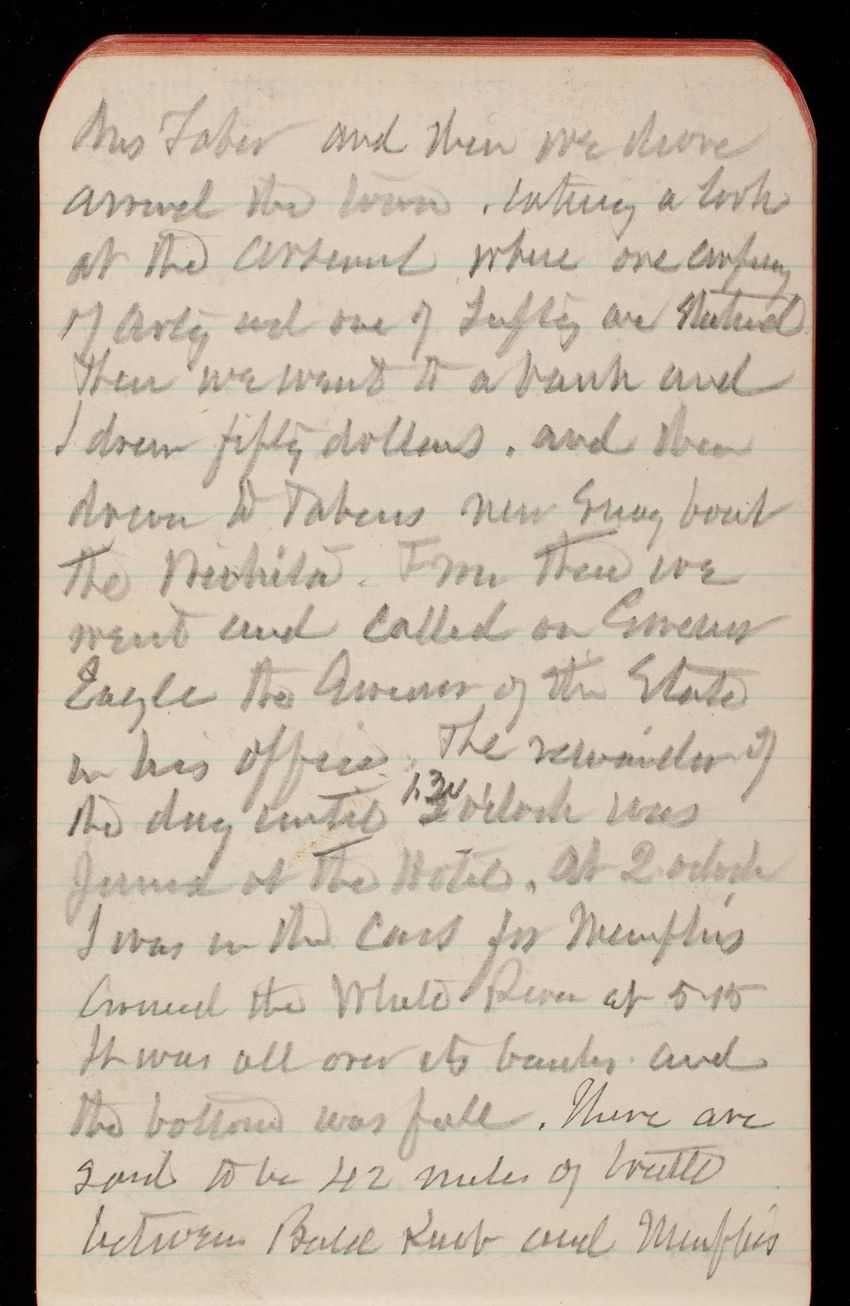 Mrs Taber and then we drove
around the town. taking a look
at the Arsenal where one company
of Arty and one of Infty are stationed
Then we went to a bank and
I drew fifty dollars. and then
down to Tabers new Snag boat
the Wichita. From there we
went and called on Governor
Eagle the Governor of the State
in his office. The remainder of
the day until 1.30 o'clock was
at the Hotel. At 2 oclock
I was in the cars for Memphis
Crossed the White River at 5-15
It was all over its banks and
the bottom was full. There are
said to be 42 miles of
between Bald Knob and Memphis